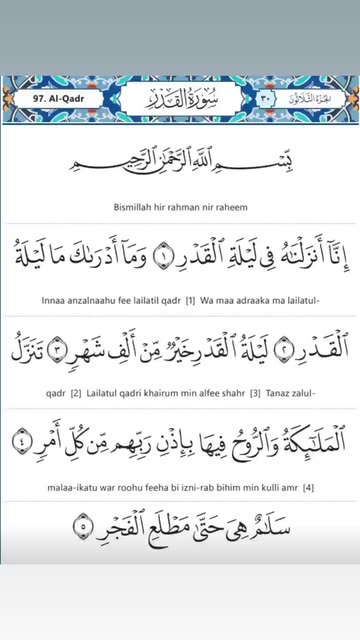 97. Al-Qadr سُورَةُ القَدْرِ ٣٠ الجُزْءُ الثَّلَاثُونَ
بِسْمِ ٱللَّهِ ٱلرَّحْمَٰنِ ٱلرَّحِيمِ
Bismillah hir rahman nir raheem
إِنَّآ أَنزَلْنَٰهُ فِى لَيْلَةِ ٱلْقَدْرِ ١ وَمَآ أَدْرَىٰكَ مَا لَيْلَةُ
Innaa anzalnaahu fee lailatil qadr [1] Wa maa adraaka ma lailatul-
ٱلْقَدْرِ ٢ لَيْلَةُ ٱلْقَدْرِ خَيْرٌ مِّنْ أَلْفِ شَهْرٍ ٣ تَنَزَّلُ
qadr [2] Lailatul qadri khairum min alfee shahr [3] Tanaz zalul-
ٱلْمَلَٰٓئِكَةُ وَٱلرُّوحُ فِيهَا بِإِذْنِ رَبِّهِم مِّن كُلِّ أَمْرٍ ٤
malaa-ikatu war roohu feeha bi izni-rab bihim min kulli amr [4]
سَلَٰمٌ هِىَ حَتَّىٰ مَطْلَعِ ٱلْفَجْرِ ٥